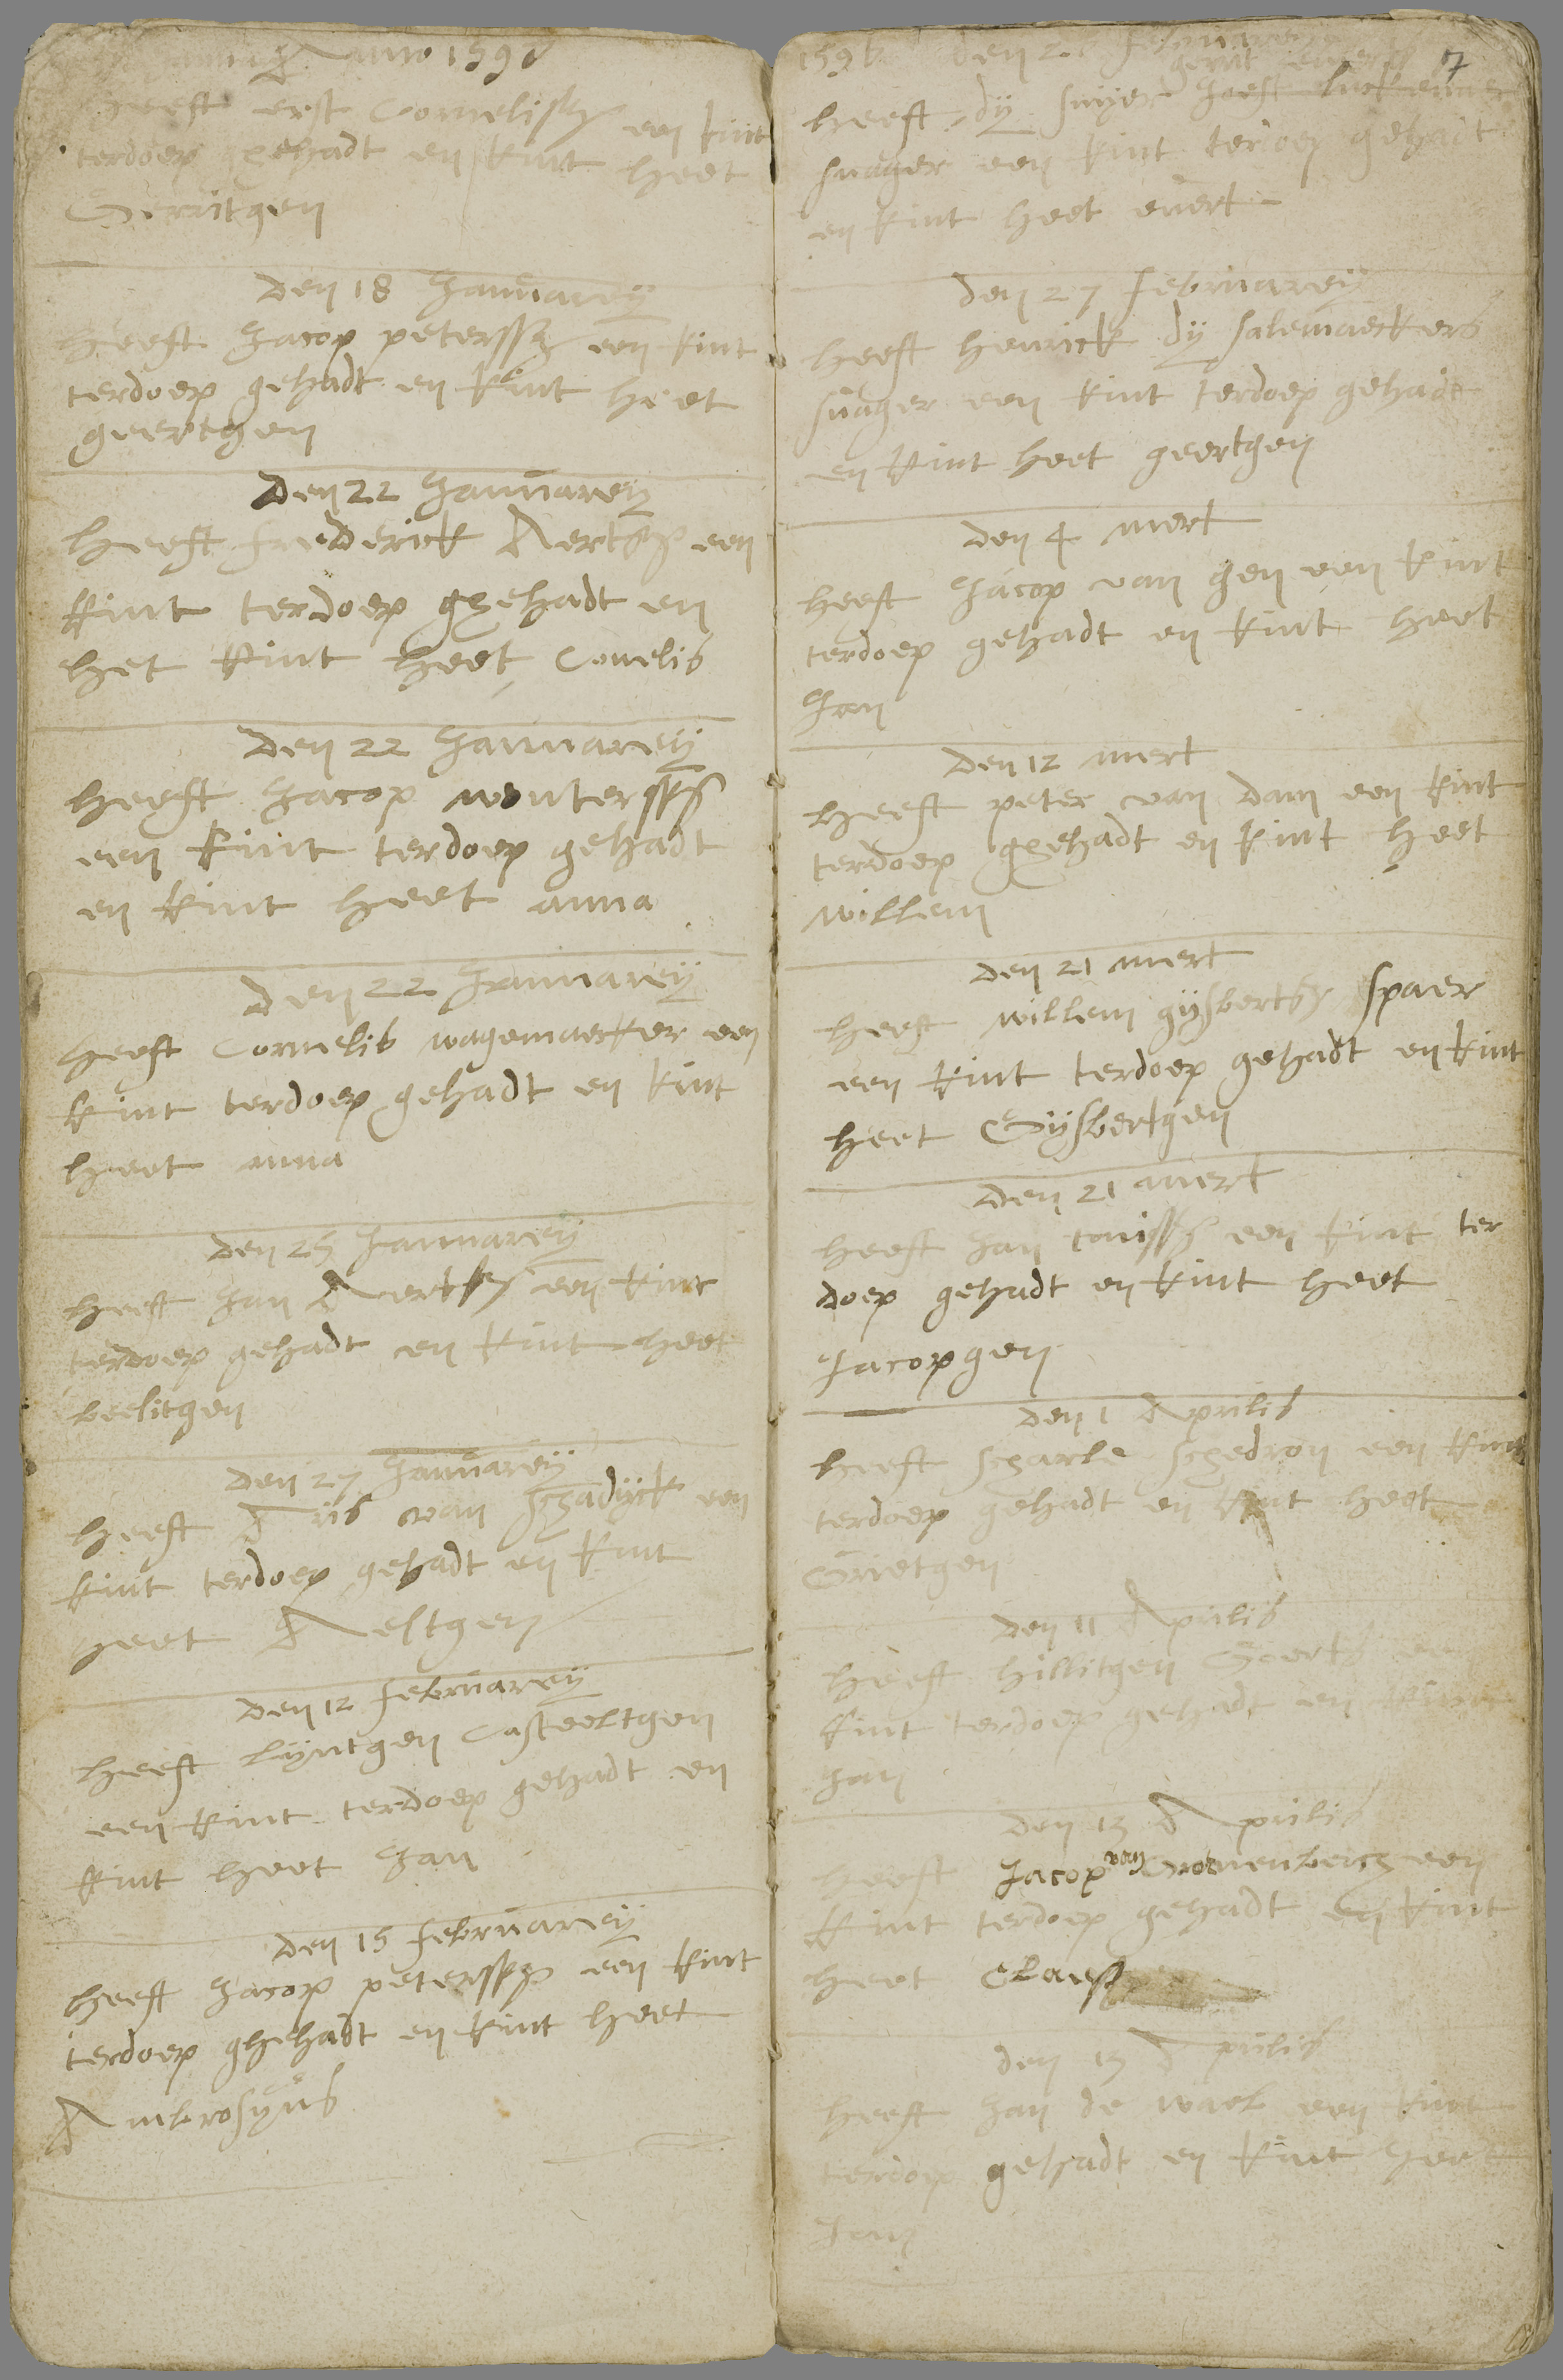 Anno 1596
heeft erst Cornelissz een kint
terdoep gehadt en kint heet
Gerritgen
den 18 Januarey
heeft Jacop peterssz een kint
terdoep gehadt en kint heet
geertgen
den 22 Januarey
heeft frederick Aertssz een
kint terdoep gehadt en
het kint heet Conelis
den 22 Jannuarey
heeft Jacop wouterssz
een kint terdoep gehadt
en kint heet anna
den 22 Jannuarey
heeft Cornelis wagemaecker een
kint terdoep gehadt en kint
heet anna
den 25 Jannuarey
heeft Jan Aertssz een kint
terdoep gehadt en kint heet
beelitgen
den 27 Januarey
heeft van schadijck een
kint terdoep gehadt en kint
heet Aeltgen
den 12 februarey
heeft lijntgen Casteeltgen
een kint terdoep gehadt en
kint heet Jan
den 15 februarey
heeft Jacop peterssz een kint
terdoep ghehadt en kint heet
Ambrosyus
1596 den februarey 7
heeft dij
suager een kint terdoep gehadt
en kint heet evert
den 27 februarey
heeft henrick dij salemaeckers
suager een kint terdoep gehadt
en kint heet geertgen
den 4 mert
heeft Jacop van gen een kint
terdoep gehadt en kint heet
Jan
den 12 mert
heeft peter van dam een kint
terdoep gehadt en kint heet
willem
den 21 mert
heeft willem gijsbertsz spaer
een kint terdoep gehadt en kint
heet Gijsbertgen
den 21 mert
heeft Jan tonissz een kint ter
doep gehadt en kint heet
Jacopgen
den 1 Aprilis
heeft scharle schedron een kint
terdoep gehadt en kint heet
Grietgen
den 11 Aprilis
heeft hillitgen Geerts een
kint terdoep gehadt en kint
Jan
den 13 Aprilis
heeft Jacop van Cronenberch een
kint terdoep gehadt en kint
heet Claes
den Aprilis
heeft Jan de wael een kint
terdoep gehadt en kint heet
Jan